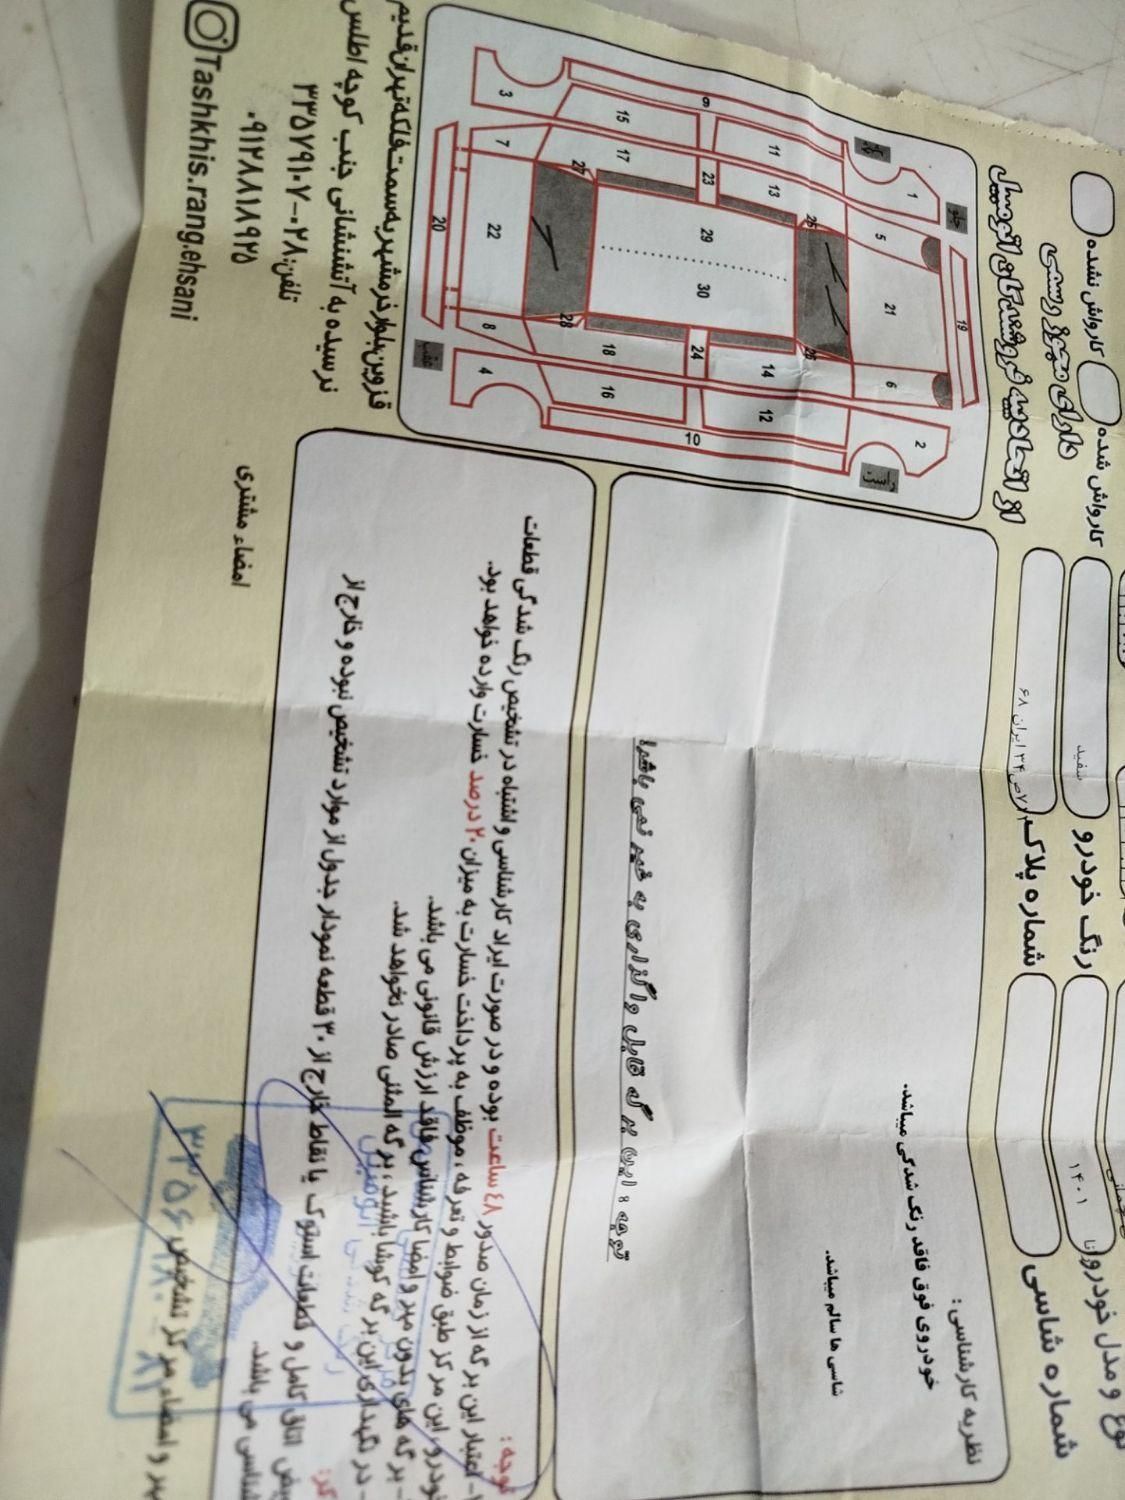 نوع و مدل خودرو
وانا
۱۴۰۱
رنگ خودرو
سفید
کارواش شده
کارواش نشده
شماره شاسی
شماره پلاک
ایران ۶۸
دارای مجوز رسمی
از اتحادیه فروشندگان اتومبیل
نظریه کارشناسی :
خودروی فوق فاقد رنگ شدگی میباشد.
شاسی ها سالم میباشد.
توجه : این برگه قابل واگذاری به غیر نمی باشد!
جلو
عقب
1
2
3
4
5
6
7
8
9
10
11
12
13
14
15
16
17
18
19
20
21
22
23
24
25
26
27
28
29
30
توجه :
۱- اعتبار این برگه از زمان صدور ٤٨ ساعت بوده و در صورت ایراد کارشناسی و اشتباه در تشخیص رنگ شدگی قطعات
خودرو، این مرکز طبق ضوابط و تعرفه، موظف به پرداخت خسارت به میزان ۲۰ درصد خسارت وارده خواهد بود.
- برگه های بدون مهر و امضا کارشناس فاقد ارزش قانونی می باشد.
- در نگهداری این برگه کوشا باشید، برگه المثنی صادر نخواهد شد.
اتاق کامل و قطعات استوک یا نقاط خارج از ۳۰ قطعه نمودار جدول از موارد تشخیص نبوده و خارج از
می باشد.
مهر و امضاء مرکز تشخیص
امضاء مشتری
قزوین بلوار خرمشهر به سمت فلکه تهران قدیم
نرسیده به آتشنشانی جنب کوچه اطلس
تلفن: ۰۲۸-۳۳۵۷۹۱۰۷
۰۹۱۲۸۸۱۸۹۲۵
Tashkhis.rang.ehsani